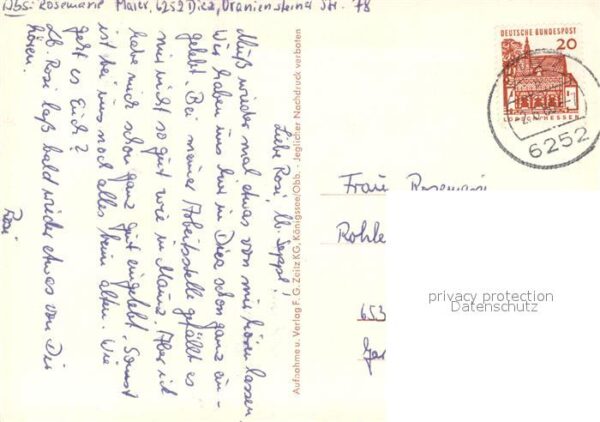 Abs: Rosemarie Maier, 6252 Diez, Oraniensteiner Str. 78
Liebe Rosi, lb. Seppl!
Muß wieder mal etwas von mir hören lassen
Wir haben uns hier in Diez schon ganz ein-
gelebt. Bei meiner Arbeitsstelle gefällt es
mir nicht so gut wie in Mainz. Aber ich
habe mich schon ganz gut eingelebt. Sonst
ist bei uns noch alles beim alten. Wie
geht es Euch?
Lb. Rosi laß bald wieder etwas von Dir
hören.
Rosi
Aufnahme u. Verlag F. G. Zeitz KG, Königssee/Obb. - Jeglicher Nachdruck verboten
DEUTSCHE BUNDESPOST
20
LORSCH/HESSEN
6252
Frau Rosemarie
Rohle
653
Gar
privacy protection
Datenschutz